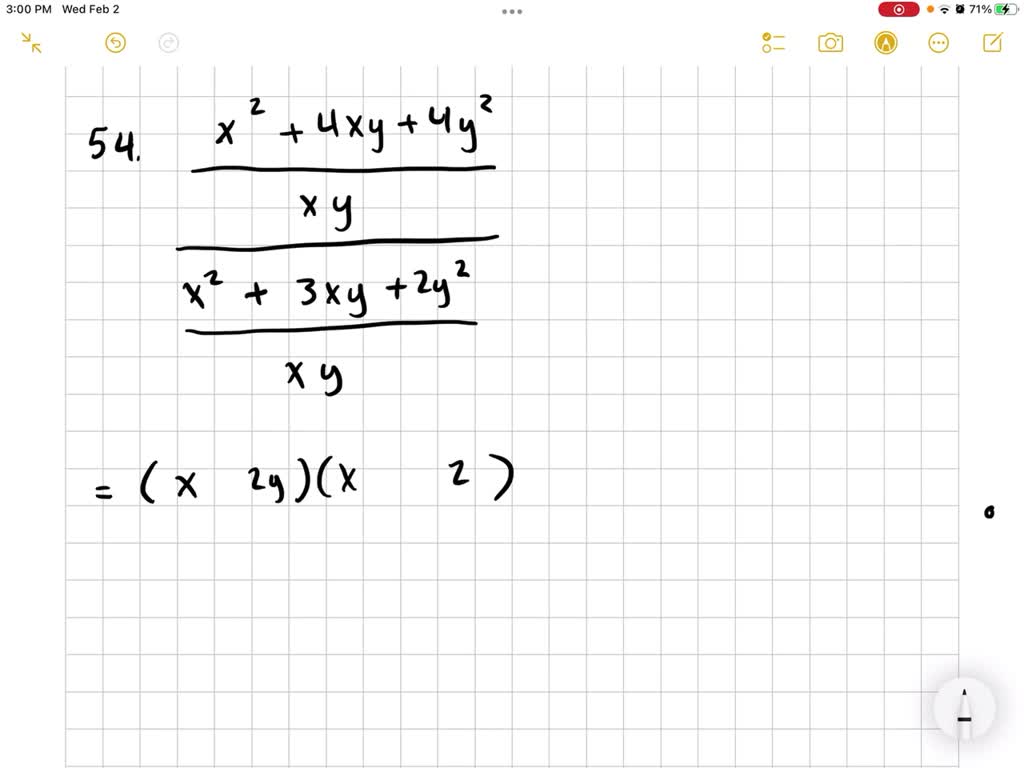 3:00 PM Wed Feb 2
71%
54. x² + 4xy + 4y²
xy
x² + 3xy + 2y²
xy
= (x 2y)(x 2 )